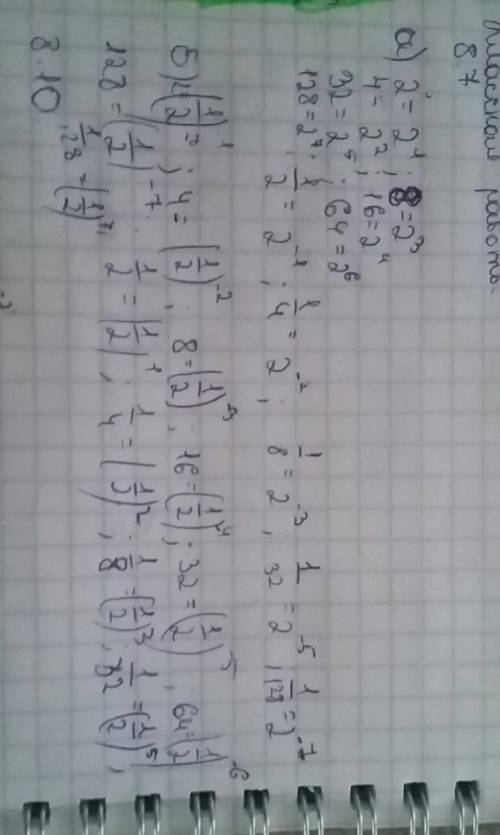 работа.
8.7
а) 2 = 2¹; 8 = 2³
4 = 2²; 16 = 2⁴
32 = 2⁵; 64 = 2⁶
128 = 2⁷; 1/2 = 2⁻¹; 1/4 = 2⁻²; 1/8 = 2⁻³; 1/32 = 2⁻⁵; 1/128 = 2⁻⁷
б) 2 = (1/2)⁻¹; 4 = (1/2)⁻²; 8 = (1/2)⁻³; 16 = (1/2)⁻⁴; 32 = (1/2)⁻⁵, 64 = (1/2)⁻⁶
128 = (1/2)⁻⁷. 1/2 = (1/2)¹; 1/4 = (1/2)²; 1/8 = (1/2)³; 1/32 = (1/2)⁵,
1/128 = (1/2)⁷.
8.10